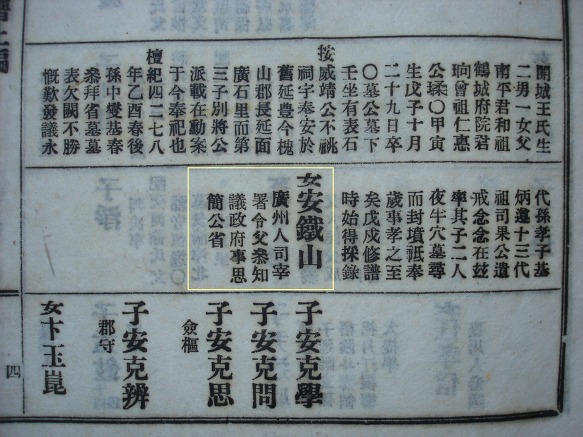 開城王氏生
二男一女父
南平君和祖
鶴城府院君
珦曾祖仁
公璖〇甲寅
生戊子十月
二十九日卒
〇墓公墓下
壬坐有表石
按威靖公不祧
祠宇奉安於
舊延豊今槐
山郡長延面
廣石里而第
三子別將公
派載在勳案
于今奉祀也
檀紀四二七八
年乙酉春後
孫中燮基春
叅拜省墓墓
表欠闕不勝
慨歎發議永
代孫孝子基
炳遵十三代
祖司果公遺
戒念念在玆
率其子二人
夜牛穴墓尋
而封墳祇奉
歲事孝之至
矣戊戌修譜
時始得採錄
女安鐵山
廣州人司宰
署令父叅知
議政府事思
簡公省
子安克學
子安克問
子安克思
僉樞
子安克辨
郡守
女卞玉崑
四